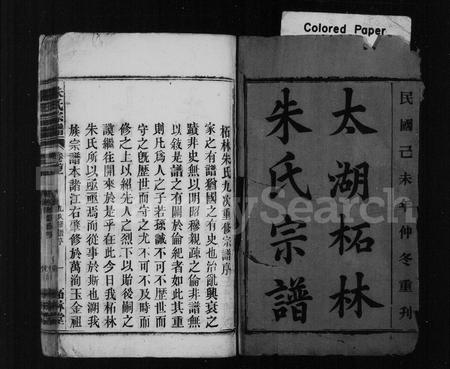 Colored Paper
民國己未年仲冬重刊
太湖柘林
朱氏宗譜
柘林朱氏九次重修宗譜序
家之有譜猶國之有史也治亂興衰之
蹟非史無以明昭穆親疎之倫非譜無
以敘是譜之有關於倫紀者如此其重
則凡為人之子若孫誠不可不歷世而
守之旣歷世而守之尤不可不及時而
修之上以紹先人之烈下以貽後嗣之
謨繼往開來於是乎在此今日我柘林
朱氏所以亟亟焉而從事於斯也溯我
族宗譜本諸江右肇修於萬洵玉金祖
朱氏宗譜
柘林堂